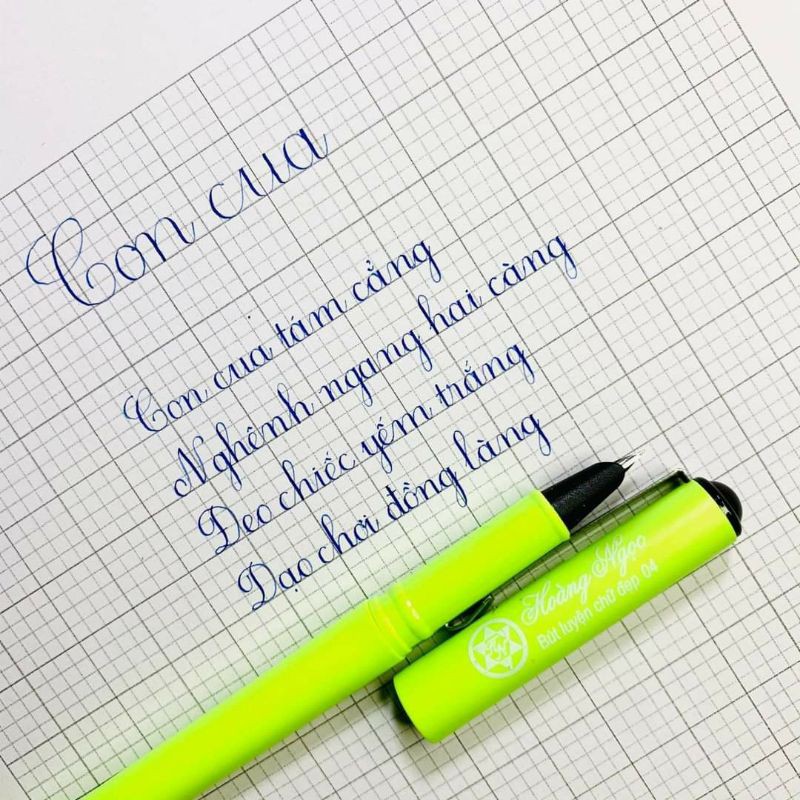 Con cua
Con cua tám cẳng
Nghênh ngang hai càng
Đeo chiếc yếm trắng
Dạo chơi đồng làng
Hoàng Ngọc
Bút luyện chữ đẹp 04